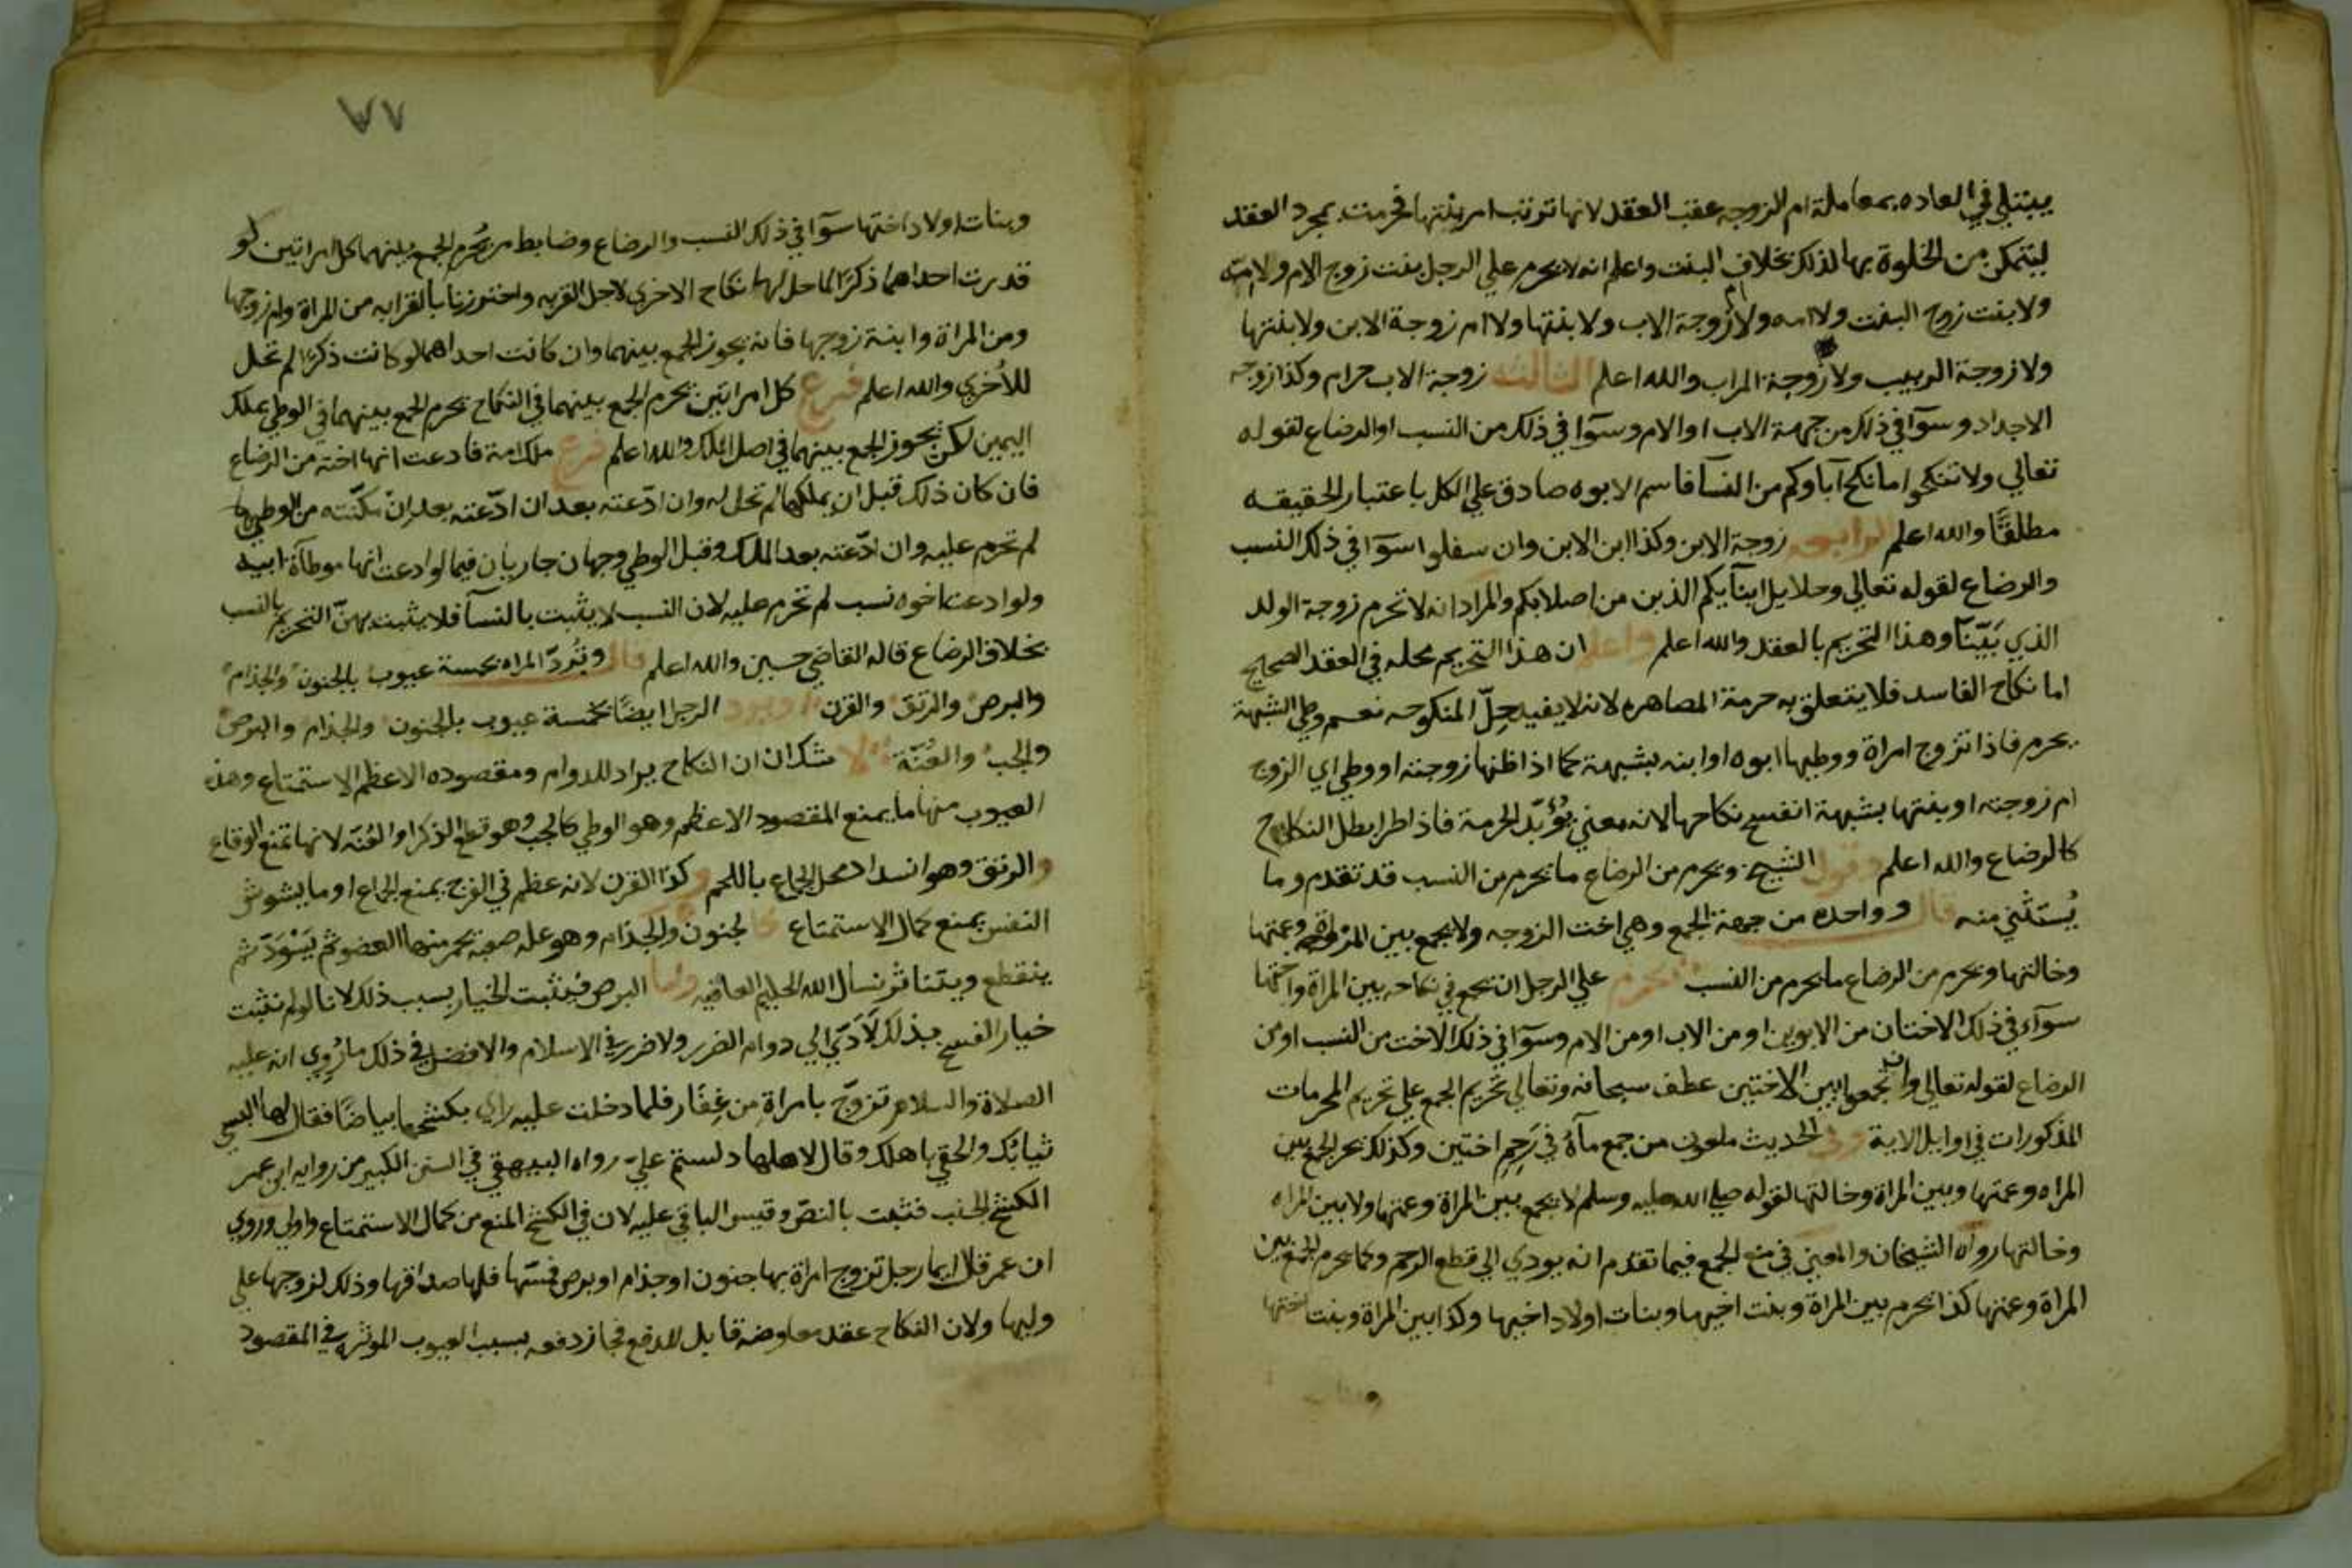 يبتلي في العاده بمعاملة ام الزوجه عقب العقد لانها ترتب امر بنتها فحرمت بمجرد العقد
ليتمكن من الخلوة بها لذلك بخلاف البنت واعلم انه لا يحرم علي الرجل بنت زوج الام ولا امه
ولا بنت زوج البنت ولا امه ولا ام زوجة الاب ولا بنتها ولا ام زوجة الابن ولا بنتها
ولا زوجة الربيب ولا زوجة الراب والله اعلم الثالثه زوجة الاب حرام وكذا زوجه
الاجداد وسوآ في ذلك من جهة الاب او الام وسوآ في ذلك من النسب او الرضاع لقوله
تعالي ولا تنكحوا ما نكح آباوكم من النسآ فاسم الابوه صادق علي الكل باعتبار الحقيقه
مطلقًا والله اعلم الرابعه زوجة الابن وكذا ابن الابن وان سفلوا سوآ في ذلك النسب
والرضاع لقوله تعالي وحلايل ابنآيكم الذين من اصلابكم والمراد انه لا تحرم زوجة الولد
الذي تَبَنّاه وهذا التحريم بالعقد والله اعلم واعلم ان هذا التحريم محله في العقد الصحيح
اما نكاح الفاسد فلا يتعلق به حرمة المصاهره لانه لا يفيد حِلّ المنكوحه نعم وطي الشبهة
يحرم فاذا تزوج امراة ووطيها ابوه او ابنه بشبهة كما اذا ظنها زوجته او وطي اي الزوج
ام زوجته او بنتها بشبهة انفسخ نكاحها لانه معني يُؤَبّد الحرمة فاذا طرا بطل النكاح
كالرضاع والله اعلم وقول الشيخ ويحرم من الرضاع ما يحرم من النسب قد تقدم وما
يُستَثني منه قال وواحده من جهة الجمع وهي اخت الزوجه ولا يجمع بين المراة وعمتها
وخالتها ويحرم من الرضاع ما يحرم من النسب يحرم علي الرجل ان يجمع في نكاحه بين المراة واختها
سوآء في ذلك الاختان من الابوين او من الاب او من الام وسوآ في ذلك الاخت من النسب او من
الرضاع لقوله تعالي وان تجمعوا بين الاختين عطف سبحانه وتعالي تحريم الجمع علي تحريم المحرمات
المذكورات في اوايل الاية وفي الحديث ملعون من جمع مآهُ في رَحِمِ اختين وكذلك يحرم الجمع بين
المراه وعمتها وبين المراة وخالتها لقوله صلي الله عليه وسلم لا يجمع بين المراة وعمتها ولا بين المراه
وخالتها رواه الشيخان والمعني في منع الجمع فيما تقدم انه يودي الي قطع الرحم وكما يحرم الجمع بين
المراة وعمتها كذا يحرم بين المراة وبنت اخيها وبنات اولاد اخيها وكذا بين المراة وبنت اختها
وبنات
٧٧
وبنات اولاد اختها سوآ في ذلك النسب والرضاع وضابط من يُحرم الجمع بينهما كل امراتين لو
قدرت احداهما ذكرًا لما حل لها نكاح الاخري لاجل القربه واحترزنا بالقرابه من المراة وام زوجها
ومن المراة وابنة زوجها فانه يجوز الجمع بينهما وان كانت احداهما لو كانت ذكرًا لم تحل
للاُخري والله اعلم فرع كل امراتين يحرم الجمع بينهما في النكاح يحرم الجمع بينهما في الوطي بملك
اليمين لكن يجوز الجمع بينهما في اصل الملك والله اعلم فرع ملك امة فادعت انها اخته من الرضاع
فان كان ذلك قبل ان يملكها لم تحل له وان ادّعته بعد ان ادّعته بعد ان مكّنته من الوطي بها
لم تحرم عليه وان ادّعته بعد الملك وقبل الوطي وجهان جاريان فيما لو ادعت انها موطآة ابيه
ولو ادعت اخوه نسب لم تحرم عليه لان النسب لا يثبت بالنسآ فلا يثبت بهنّ التحريم بالنسب
بخلاف الرضاع قاله القاضي حسين والله اعلم قال وتُردّ المراه بخمسة عيوب بالجنون والجذام
والبرص والرتق والقرن ويرد الرجل ايضًا بخمسة عيوب بالجنون والجذام والبرص
والجب والعُنّة لا شك ان النكاح يراد للدوام ومقصوده الاعظم الاستمتاع وهذه
العيوب منها ما يمنع المقصود الاعظم وهو الوطي كالجب وهو قطع الذكر او العُنّه لانها تمنع الوقاع
والرتق وهو انسداد محل الجماع باللحم وكذا القرن لانه عظم في الفرج يمنع الجماع او ما يشوش
النفس يمنع كمال الاستمتاع كالجنون والجذام وهو علة صعبة يحمر منها العضو ثم يَسْوَدّ ثم
ينقطع ويتناثر نسال الله الحليم العافيه واما البرص فيثبت الخيار بسبب ذلك لانا لو لم نثبت
خيار الفسخ بذلك لَادّي الي دوام الضرر ولا ضرر في الاسلام والافضل في ذلك ما رُوي انه عليه
الصلاة والسلام تزوّج بامراة من غِفار فلما دخلت عليه راي بكشحها بياضًا فقال لها البسي
ثيابك والحقي باهلك وقال لاهلها دلستم عليّ رواه البيهقي في السنن الكبير من روايه ابن عمر
الكشح الجنب فثبت بالنصّ وقيس الباقي عليه لان في الكشح المنع من كمال الاستمتاع واولي وروي
ان عمر قال ايما رجل تزوج امراة بها جنون او جذام او برص فمسّها فلها صداقها وذلك لزوجها علي
وليها ولان النكاح عقد معاوضه قابل للدفع فجاز دفعه بسبب العيوب الموثره في المقصود